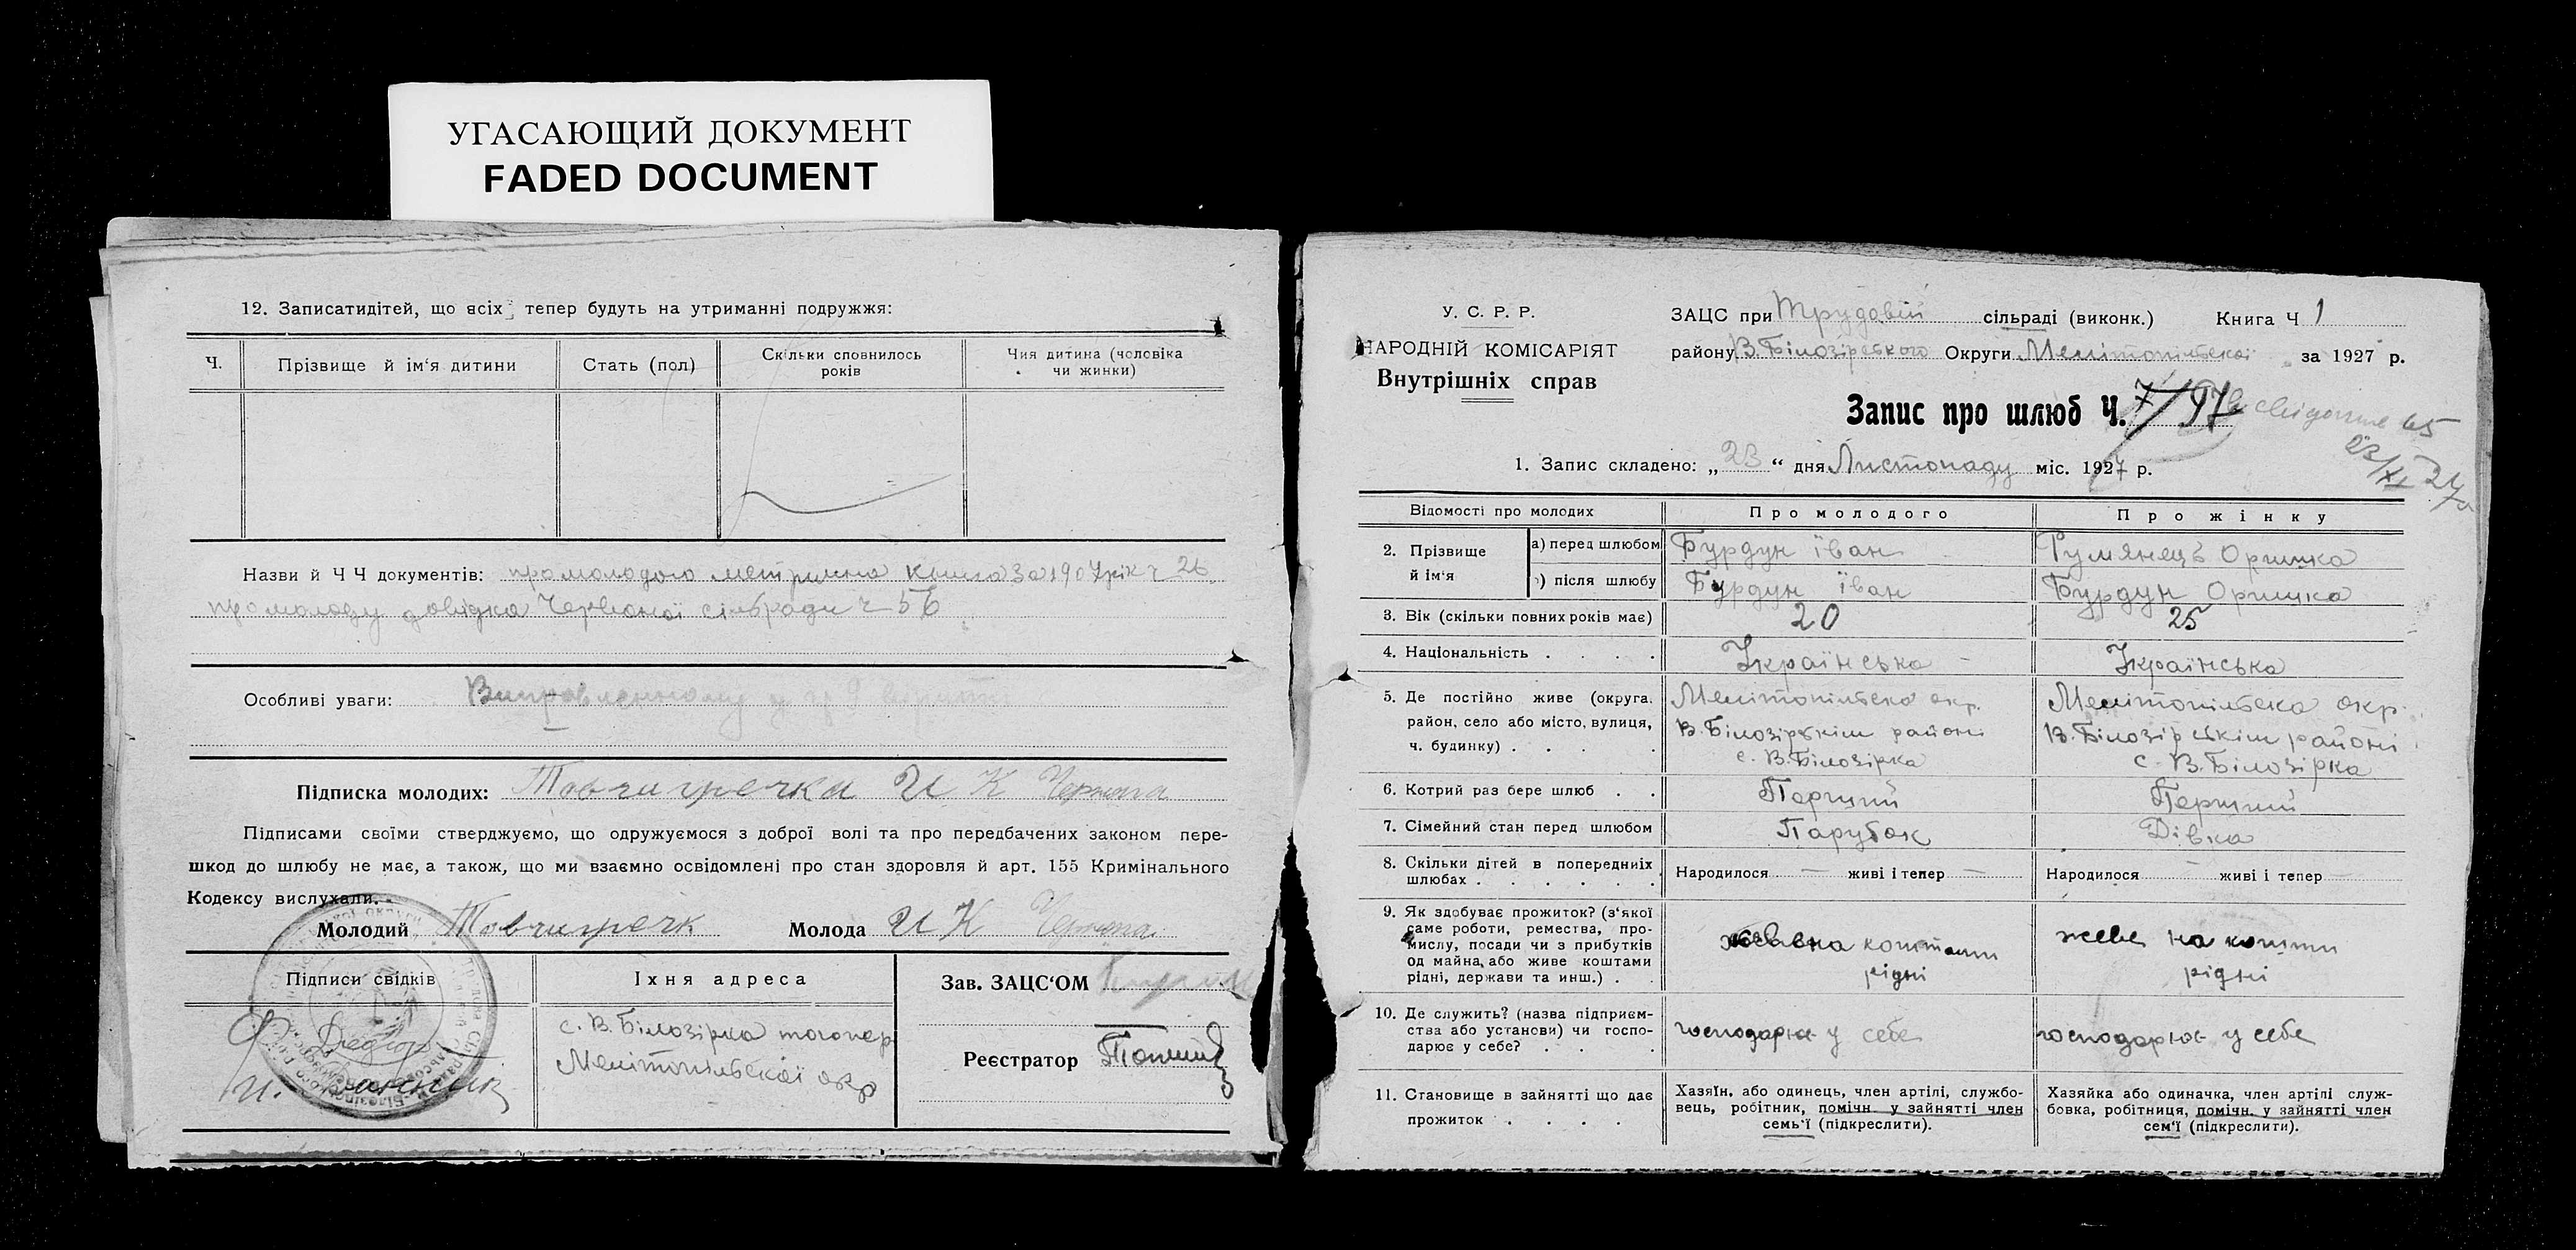 УГАСАЮЩИЙ ДОКУМЕНТ
FADED DOCUMENT
12. Записатидітей, що всіх тепер будуть на утриманні подружжя:
Ч.
Прізвище й ім‘я дитини
Стать (пол)
Скільки сповнилось
років
Чия дитина (чоловіка
чи жинки)
Назви й Ч Ч документів: про молодого метрична книга за 1907 рік ч 26
про молоду довідка Червоної сільради ч 56
Особливі уваги: Виправленному у гр 9
Підписка молодих: Товчигречка И К
Підписами своїми стверджуємо, що одружуємося з доброї волі та про передбачених законом пере-
шкод до шлюбу не має, а також, що ми взаємно освідомлені про стан здоровля й арт. 155 Кримінального
Кодексу вислухали.
Молодий Товчигречк Молода И К
Підписи свідків
Їхня адреса
с. В. Білозірка
Мелітопільської окр
Зав. ЗАЦС‘ОМ
Реєстратор
У. С. Р. Р.
НАРОДНІЙ КОМІСАРІЯТ
Внутрішніх справ
ЗАЦС при Трудовій сільраді (виконк.) Книга Ч 1
району В. Білозірського Округи Мелітопільської за 1927 р.
Запис про шлюб Ч. 7/97
65
23/XI 27
1. Запис складено: „23“ дня Листопаду міс. 1927 р.
Відомості про молодих
Про молодого
Про жінку
2. Прізвище
й ім‘я
а) перед шлюбом
Бурдун іван
Румянець Оришка
) після шлюбу
Бурдун іван
Бурдун Оришка
3. Вік (скільки повних років має)
20
25
4. Національність . . . .
Українська
Українська
5. Де постійно живе (округа,
район, село або місто, вулиця,
ч. будинку) . . . .
Мелітопільска окр.
В. Білозірскім районі
с. В. Білозірка
Мелітопільска окр.
В. Білозірскім районі
с. В. Білозірка
6. Котрий раз бере шлюб . .
Перший
Перший
7. Сімейний стан перед шлюбом
Парубок
Дівка
8. Скільки дітей в попередніх
шлюбах . . . . . .
Народилося — живі і тепер —
Народилося — живі і тепер —
9. Як здобуває прожиток? (з‘якої
саме роботи, ремества, про-
мислу, посади чи з прибутків
од майна, або живе коштами
рідні, держави та инш.) . .
на коштами
рідні
жеве на кошти
рідні
10. Де служить? (назва підприєм-
ства або установи) чи госпо-
дарює у себе? . . .
господарює у себе
господарює у себе
11. Становище в зайнятті що дає
прожиток . . . .
Хазяїн, або одинець, член артілі, службо-
вець, робітник, помічн. у зайнятті член
семь‘ї (підкреслити).
Хазяйка або одиначка, член артілі служ-
бовка, робітниця, помічн. у зайнятті член
сем‘ї (підкреслити).